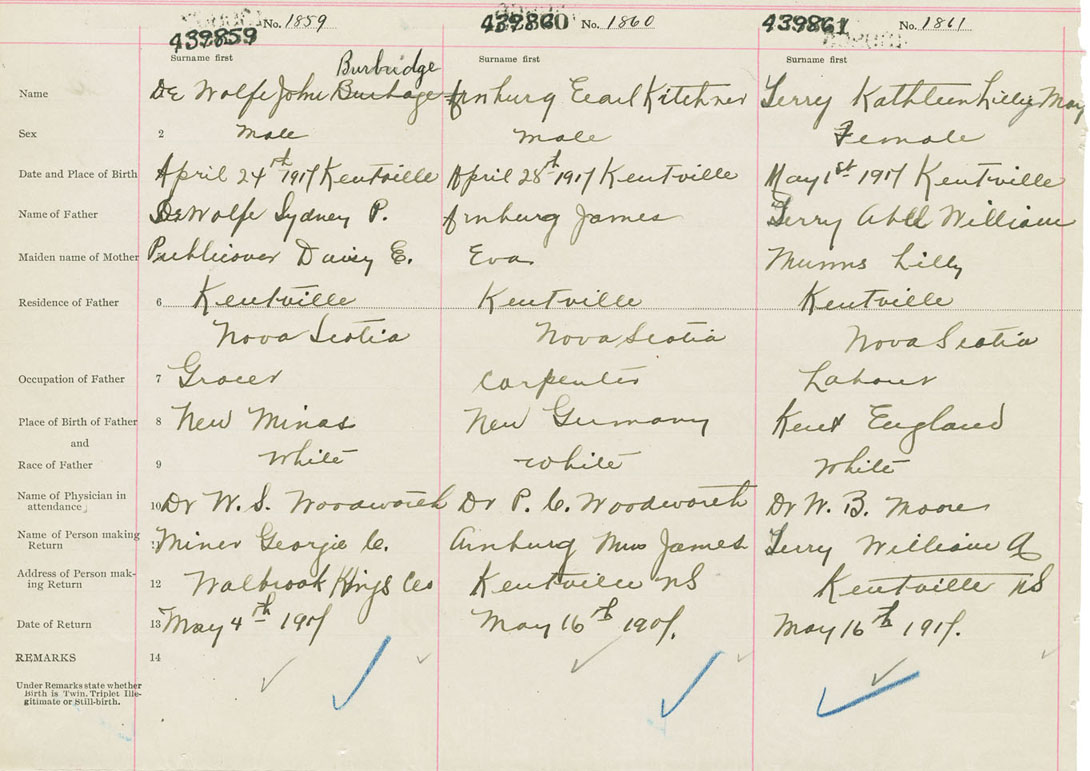 439859 No. 1859 439860 No. 1860 439861 No. 1861
Surname first Surname first Surname first
Burbridge
Name De Wolfe John Burbage Arnburg Eearl Kitchner Terry Kathleen Lilly May
Sex 2 Male Male Female
Date and Place of Birth April 24th 1917 Kentville April 28th 1917 Kentville May 1st 1917 Kentville
Name of Father DeWolfe Sydney P. Arnburg James Terry Abel William
Maiden name of Mother Publicover Daisy E. Eva Munns Lilly
Residence of Father 6 Kentville Kentville Kentville
Nova Scotia Nova Scotia Nova Scotia
Occupation of Father 7 Grocer Carpenter Labour
Place of Birth of Father 8 New Minas New Germany Kent England
and
Race of Father 9 White White White
Name of Physician in
attendance 10 Dr W. S. Woodworth Dr P. C. Woodworth Dr W. B. Moore
Name of Person making
Return Miner Georgie C. Arnburg Mrs James Terry William A
Address of Person mak-
ing Return 12 Walbrook Kings Co Kentville NS Kentville NS
Date of Return 13 May 4th 1917 May 16th 1907. May 16th 1917.
REMARKS 14
Under Remarks state whether
Birth is Twin. Triplet Ille-
gitimate or Still-birth.